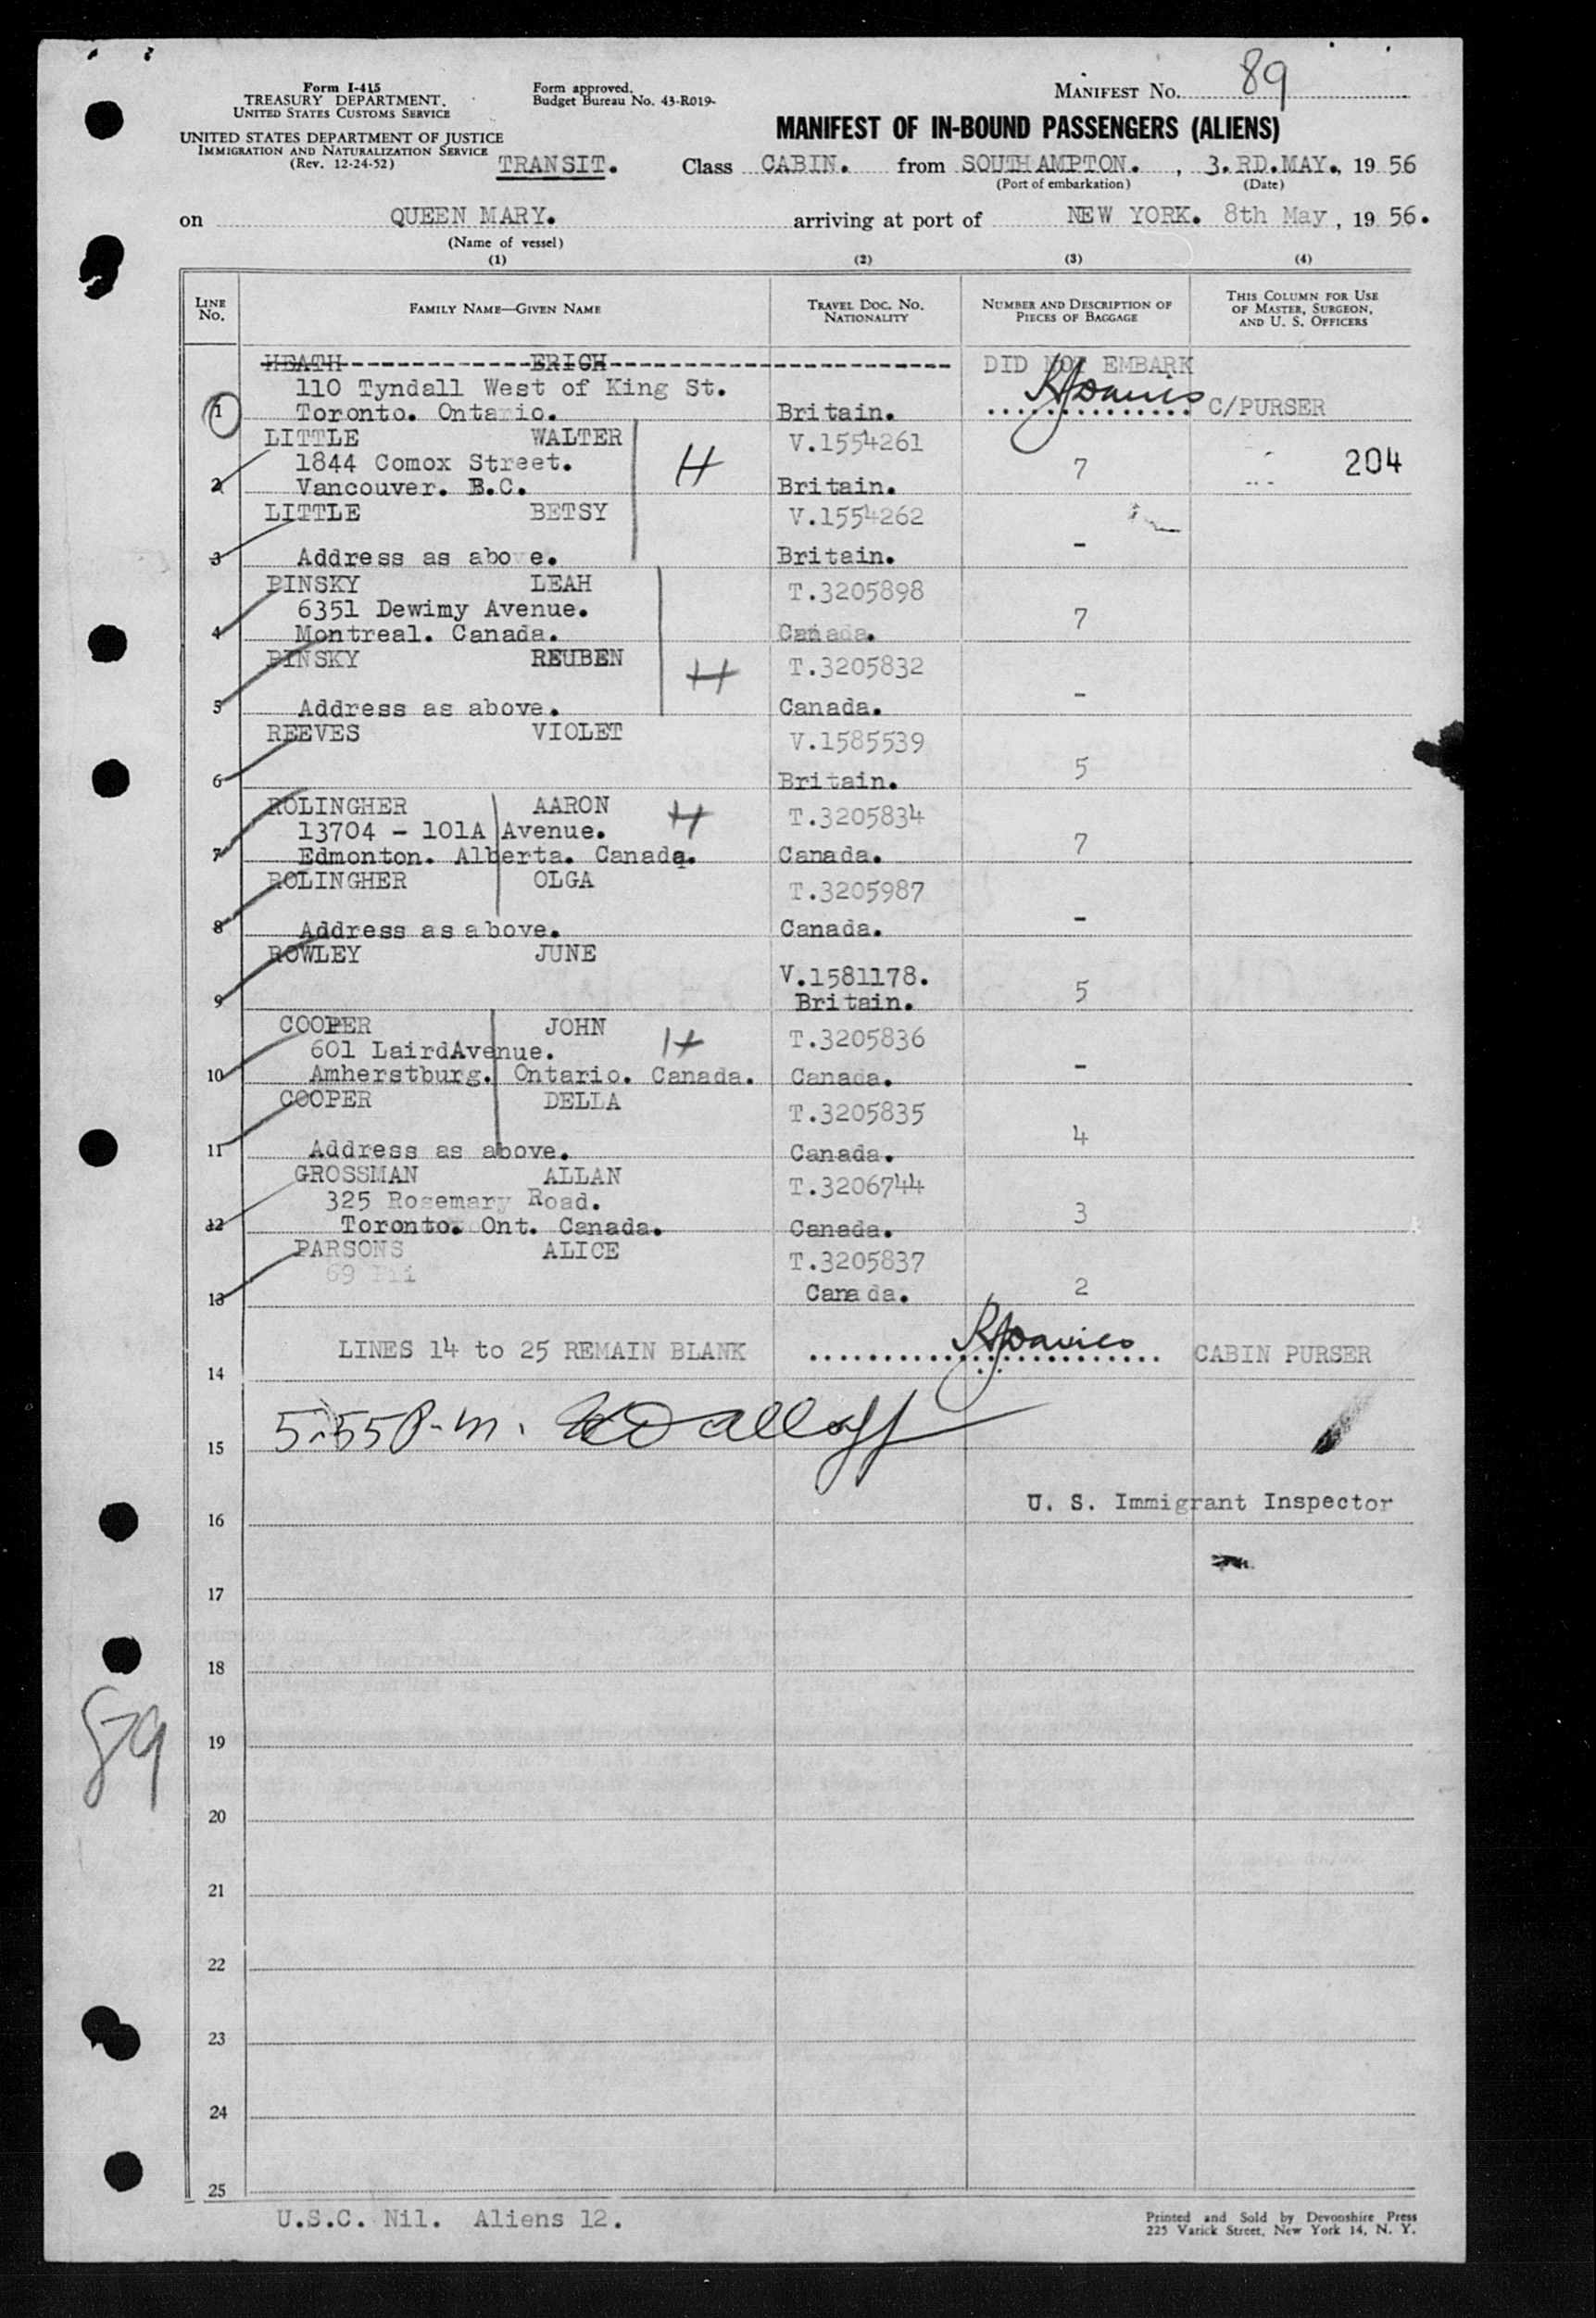 Form I-415
TREASURY DEPARTMENT.
UNITED STATES CUSTOMS SERVICE
UNITED STATES DEPARTMENT OF JUSTICE
IMMIGRATION AND NATURALIZATION SERVICE
(Rev. 12-24-52)
Form approved.
Budget Bureau No. 43-R019-
MANIFEST NO. 89
MANIFEST OF IN-BOUND PASSENGERS (ALIENS)
TRANSIT. Class CABIN. from SOUTHAMPTON. , 3.RD.MAY., 19 56
(Port of embarkation) (Date)
on QUEEN MARY. arriving at port of NEW YORK. 8th May , 19 56.
(Name of vessel)
(1) (2) (3) (4)
LINE No. FAMILY NAME—GIVEN NAME TRAVEL DOC. NO. NATIONALITY NUMBER AND DESCRIPTION OF PIECES OF BAGGAGE THIS COLUMN FOR USE OF MASTER, SURGEON, AND U. S. OFFICERS
HEATH ERICH DID NOT EMBARK
110 Tyndall West of King St.
1 Toronto. Ontario. Britain. C/PURSER
LITTLE WALTER V.1554261
1844 Comox Street. H 7 204
2 Vancouver. B.C. Britain.
LITTLE BETSY V.1554262
3 Address as above. Britain. -
PINSKY LEAH T.3205898
6351 Dewimy Avenue. 7
4 Montreal. Canada. Canada.
PINSKY REUBEN T.3205832
H -
5 Address as above. Canada.
REEVES VIOLET V.1585539
6 Britain. 5
ROLINGHER AARON H T.3205834
13704 - 101A Avenue. 7
7 Edmonton. Alberta. Canada. Canada.
ROLINGHER OLGA T.3205987
8 Address as above. Canada. -
ROWLEY JUNE V.1581178.
9 Britain. 5
COOPER JOHN H T.3205836
601 LairdAvenue.
10 Amherstburg. Ontario. Canada. Canada. -
COOPER DELLA T.3205835
11 Address as above. Canada. 4
GROSSMAN ALLAN T.3206744
325 Rosemary Road. 3
12 Toronto. Ont. Canada. Canada.
PARSONS ALICE T.3205837
69
13 Canada. 2
LINES 14 to 25 REMAIN BLANK CABIN PURSER
14
5.55 P.m.
15
U. S. Immigrant Inspector
16
17
18
89
19
20
21
22
23
24
25
U.S.C. Nil. Aliens 12.
Printed and Sold by Devonshire Press
225 Varick Street, New York 14, N. Y.